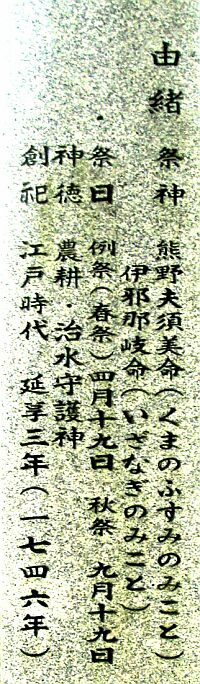 由緒
祭神 熊野夫須美命(くまのふすみのみこと)
伊邪那岐命(いざなぎのみこと)
・祭日 例祭(春祭)四月十九日 秋祭 九月十九日
神徳 農耕・治水守護神
創祀 江戸時代 延享三年(一七四六年)